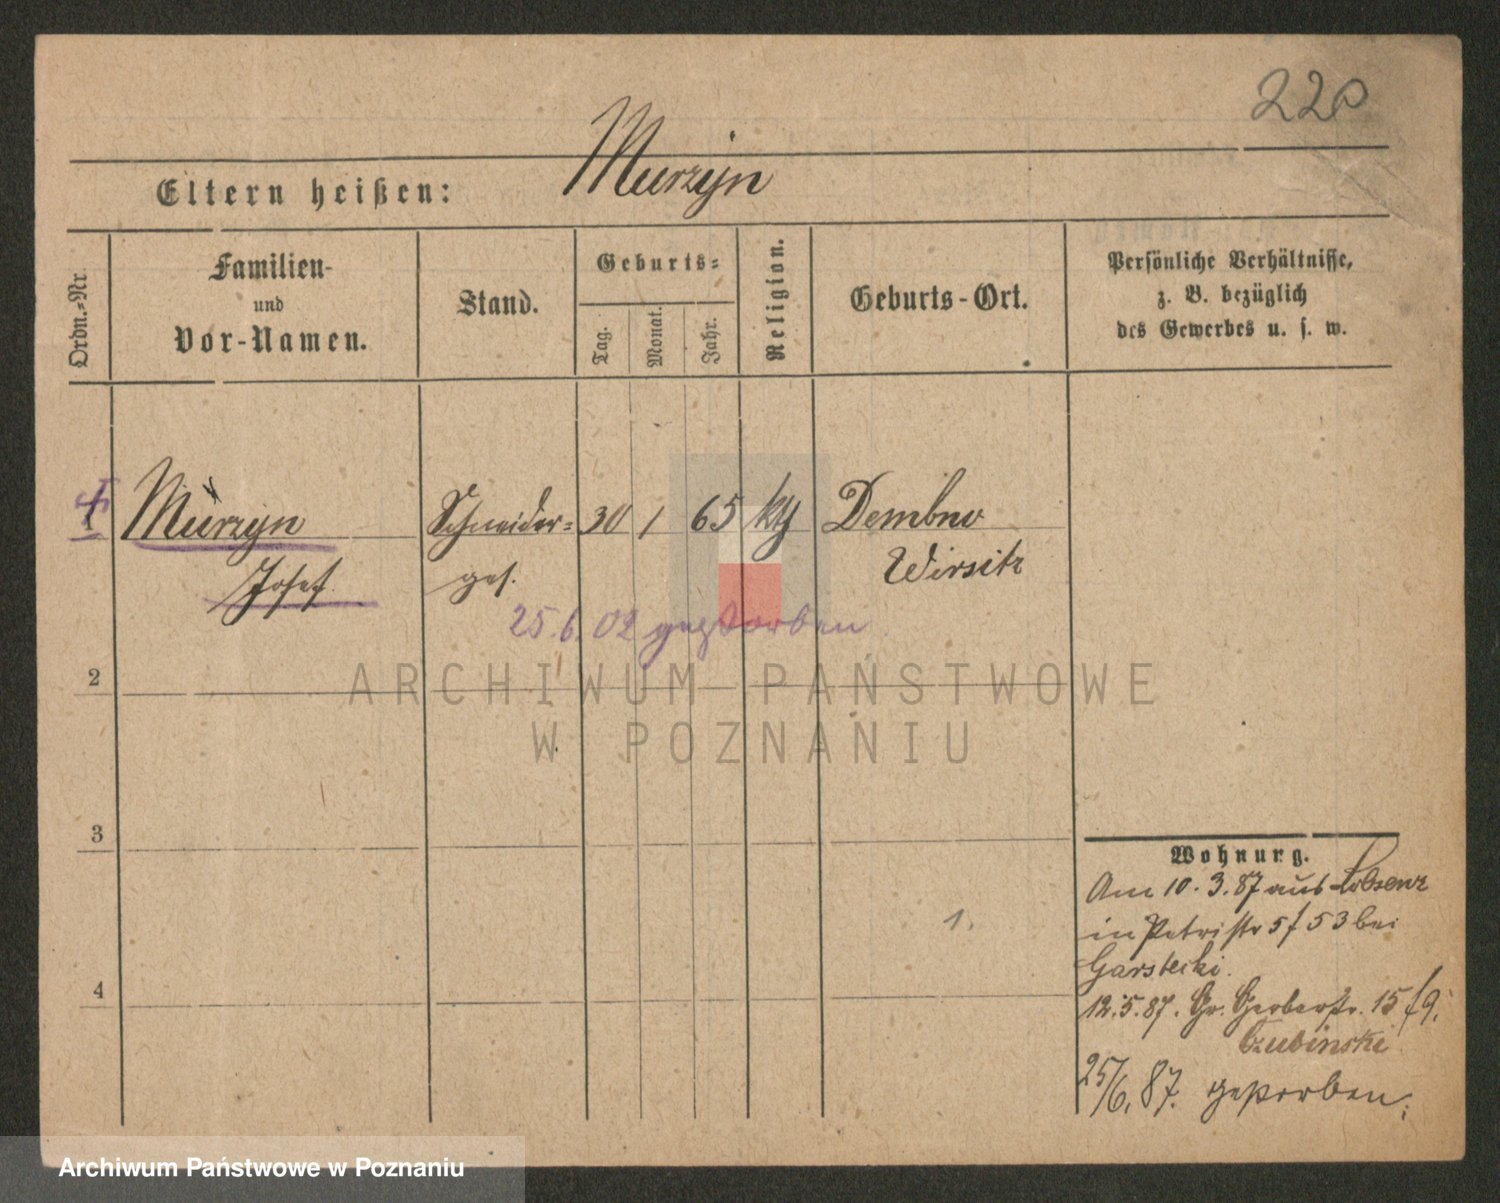 220
Murzyn
Eltern heißen:
Ordn.-Nr.
Familien-
und
Vor-Namen.
Stand.
Geburts-
Tag.
Monat.
Jahr.
Religion.
Geburts-Ort.
Persönliche Verhältnisse,
z. B. bezüglich
des Gewerbes u. s. w.
1 Murzyn Schneider- 30 1 65 kth Dembno
Josef ges. Wirsitz
25.6.02 gestorben
2
3
4
1.
Wohnung.
Am 10.3.87 aus Lobsenz
in Petristr 5 f 53 bei
Garstecki.
12.5.87. Gr. Gerberstr. 15 f 9.
Czubinski
25/6.87. gestorben.
ARCHIWUM PAŃSTWOWE
W POZNANIU
Archiwum Państwowe w Poznaniu